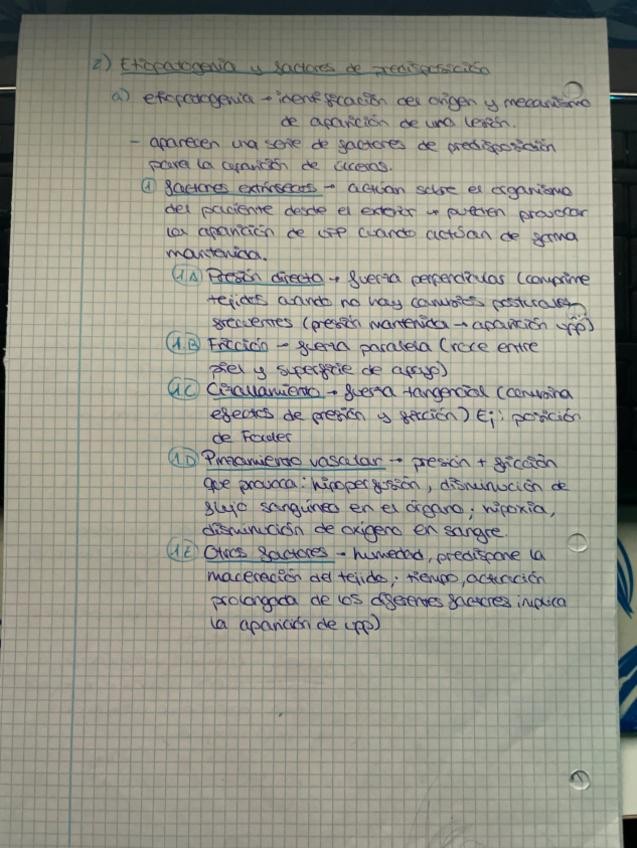 2) Etiopatogenia y factores de predisposición
a) etiopatogenia → identificación del origen y mecanismo
de aparición de una lesión.
- aparecen una serie de factores de predisposición
para la aparición de úlceras.
1 factores extrínsecos → actúan sobre el organismo
del paciente desde el exterior → pueden provocar
la aparición de UPP cuando actúan de forma
mantenida.
1A Presión directa → fuerza perpendicular (comprime
tejidos cuando no hay cambios posturales
frecuentes (presión mantenida → aparición upp)
1.B Fricción - fuerza paralela (roce entre
piel y superficie de apoyo)
1C Cizallamiento → fuerza tangencial (combina
efectos de presión y fricción) Ej: posición
de Fowler
1D Pinzamiento vascular → presión + fricción
que provoca: hipoperfusión, disminución de
flujo sanguíneo en el órgano; hipoxia,
disminución de oxígeno en sangre.
1E Otros factores - humedad, predispone la
maceración del tejido; tiempo, actuación
prolongada de los diferentes factores implica
la aparición de upp)